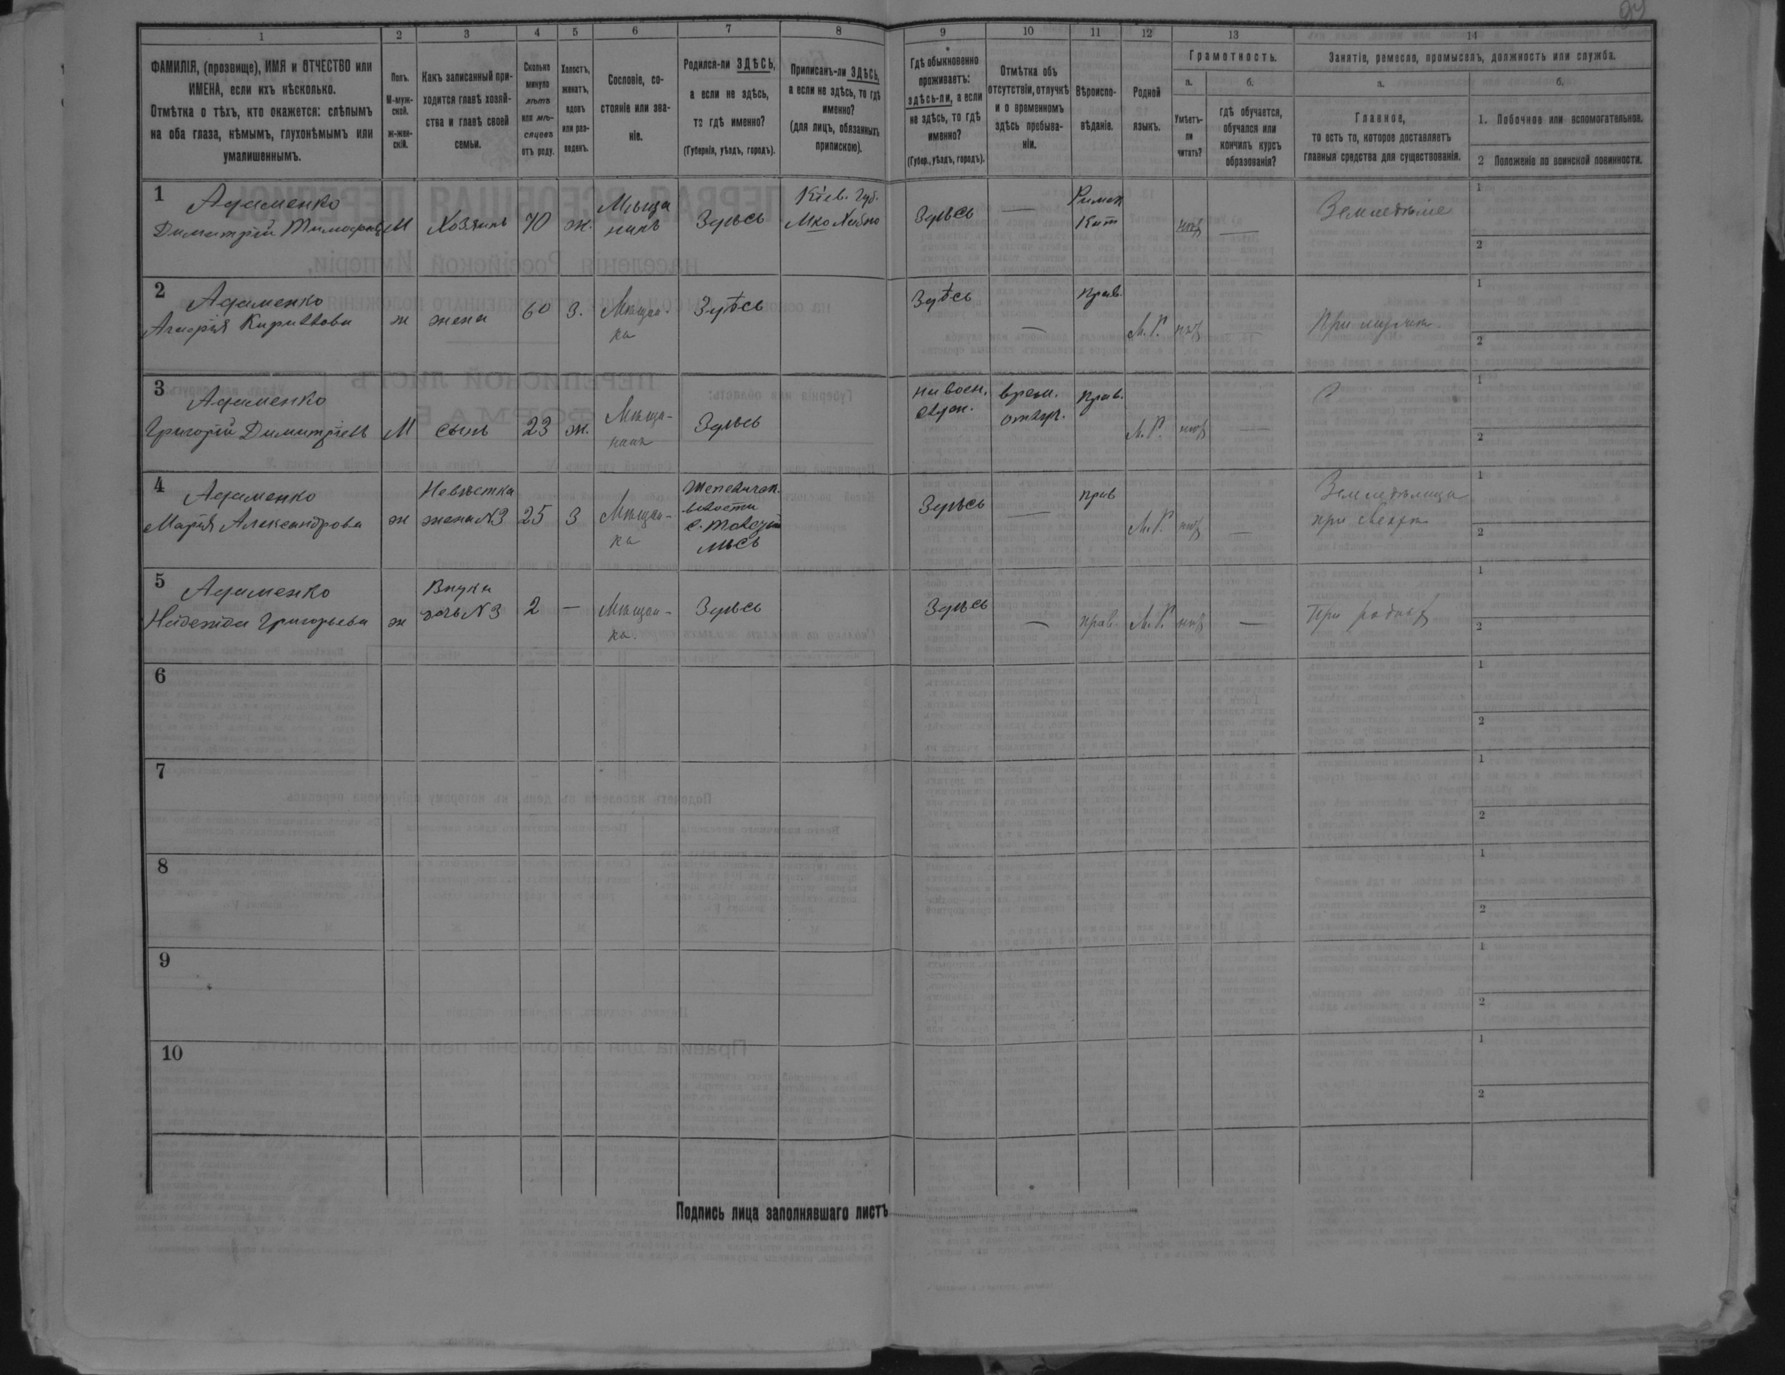 1 2 3 4 5 6 7 8 9 10 11 12 13 14
ФАМИЛІЯ, (прозвище), ИМЯ и ОТЧЕСТВО или
ИМЕНА, если ихъ нѣсколько.
Отмѣтка о тѣхъ, кто окажется: слѣпымъ
на оба глаза, нѣмымъ, глухонѣмымъ или
умалишеннымъ.
Полъ.
М-муж-
ской.
ж-жен-
скій.
Какъ записанный при-
ходится главѣ хозяй-
ства и главѣ своей
семьи.
Сколько
минуло
лѣтъ
или мѣ-
сяцевъ
отъ роду.
Холостъ,
женатъ,
вдовъ
или раз-
веденъ.
Сословіе, со-
стояніе или зва-
ніе.
Родился-ли ЗДѢСЬ,
а если не здѣсь,
то гдѣ именно?
(Губернія, уѣздъ, городъ).
Приписанъ-ли ЗДѢСЬ,
а если не здѣсь, то гдѣ
именно?
(для лицъ, обязанныхъ
припискою).
Гдѣ обыкновенно
проживаетъ:
здѣсь-ли, а если
не здѣсь, то гдѣ
именно?
(Губер., уѣздъ, городъ).
Отмѣтка объ
отсутствіи, отлучкѣ
и о временномъ
здѣсь пребыва-
ніи.
Вѣроиспо-
вѣданіе.
Родной
языкъ.
Грамотность.
а.
Умѣетъ-
ли
читать?
б.
гдѣ обучается,
обучался или
кончилъ курсъ
образованія?
Занятіе, ремесло, промыселъ, должность или служба.
а.
Главное,
то есть то, которое доставляетъ
главныя средства для существованія.
б.
1. Побочное или вспомогательное.
2 Положеніе по воинской повинности.
1 Адаменко
Димитрій М Хозяинъ 70 ж. Мѣща
нинъ Здѣсь Кіев. Губ.
Здѣсь — Римск
Кат нѣтъ — Земледѣліе
1
2
2 Адаменко
Кириллова ж жена 60 З. Мѣщан-
ка Здѣсь Здѣсь — Прав. М. Р. нѣтъ — При мужѣ
1
2
3 Адаменко
Григорій Димитріевъ М Сынъ 23 ж. Мѣща-
нинъ Здѣсь на воен.
служ. врем.
отлуч. Прав. М. Р. нѣтъ —
1
2
4 Адаменко
Марія Александрова ж Невѣстка
жена N3 25 З Мѣщан-
ка
Здѣсь — Прав М. Р. нѣтъ — Земледѣлица
при свекрѣ
1
2
5 Адаменко
Надежда Григорьева ж Внука
дочь N3 2 — Мѣщан-
ка. Здѣсь Здѣсь — Прав. М. Р. нѣтъ — При родныхъ
1
2
6
1
2
7
1
2
8
1
2
9
1
2
10
1
2
Подпись лица заполнявшаго листъ